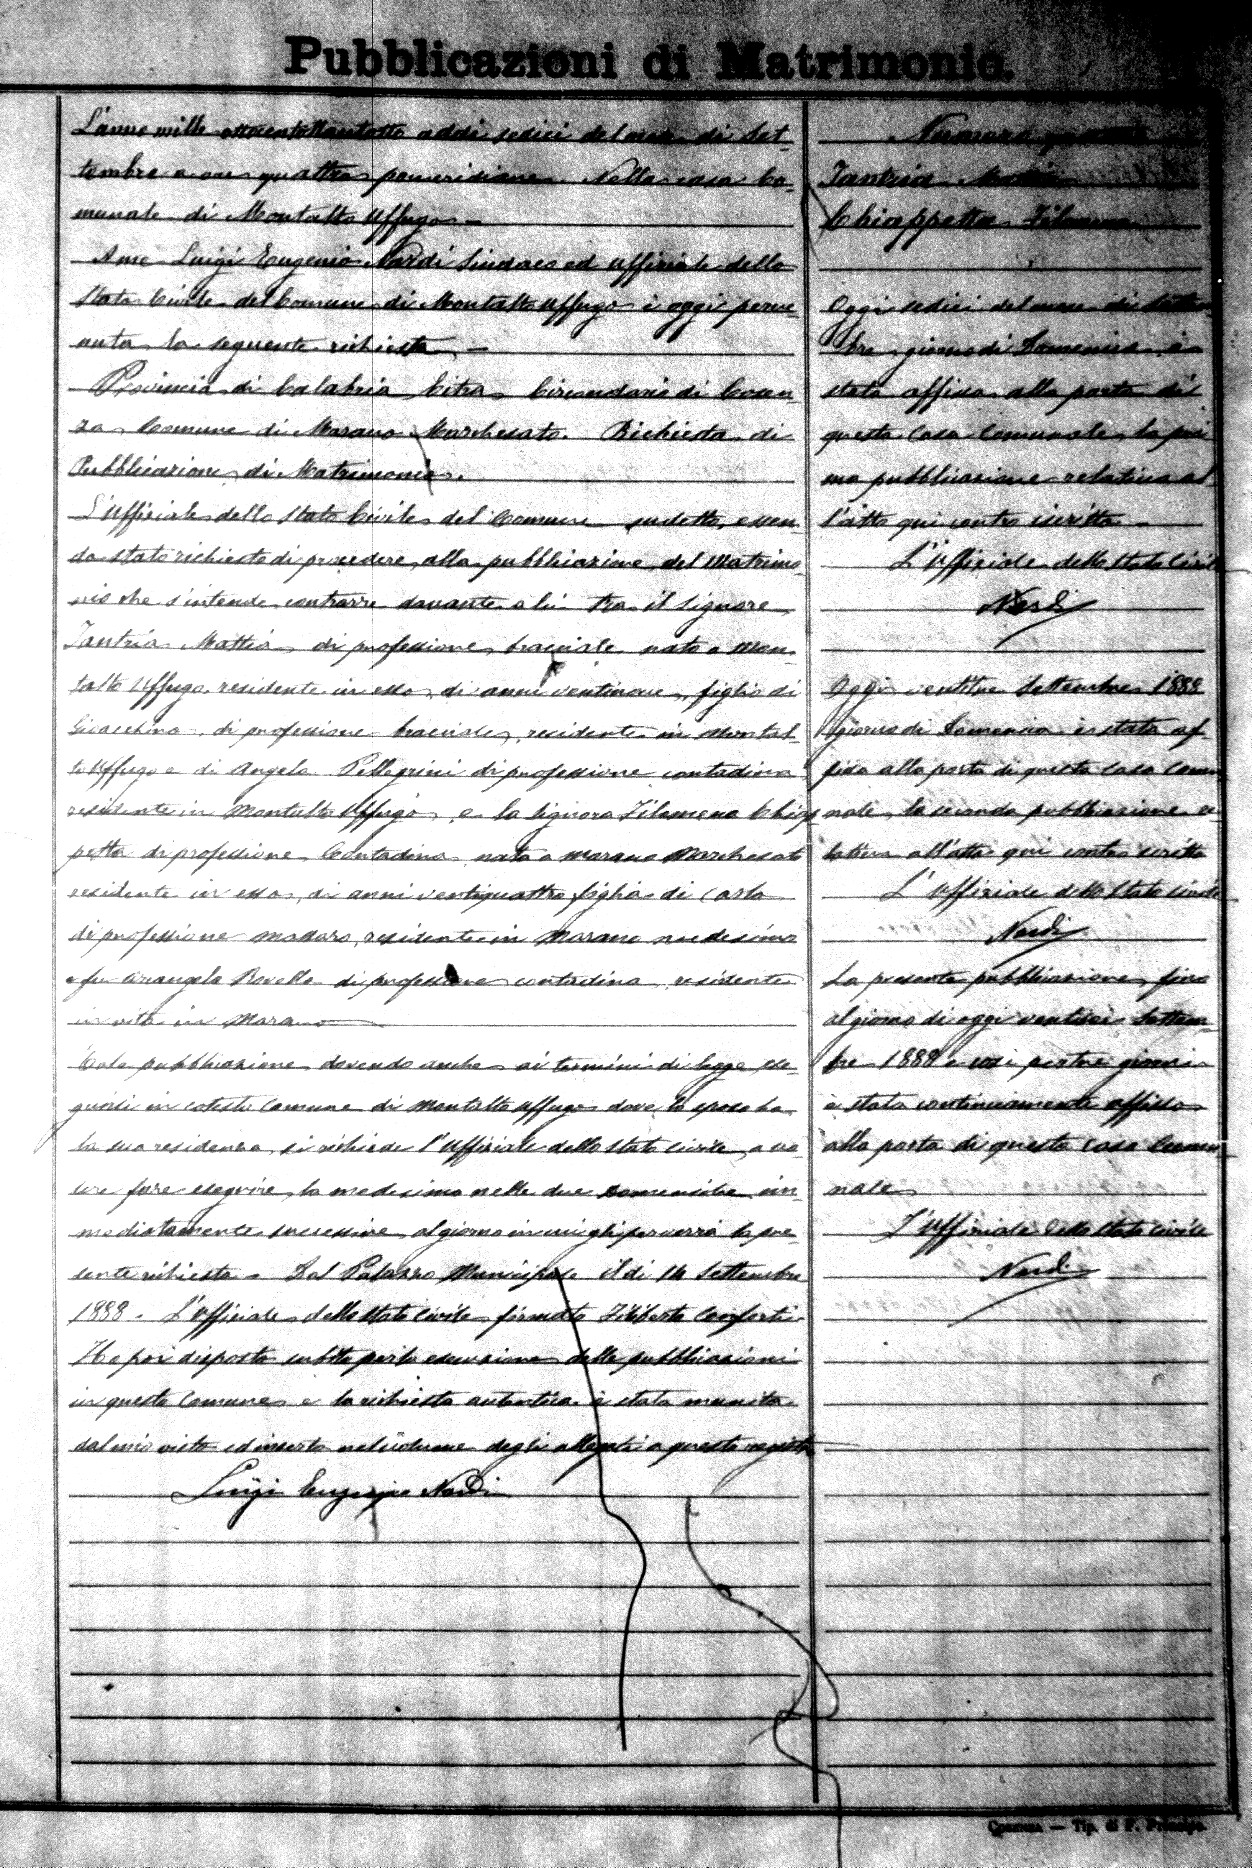 Pubblicazioni di Matrimonio.
L'anno mille ottocentottantotto addì sedici del mese di Set-
tembre a ore quattro pomeridiane Nella casa Co-
munale di Montalto Uffugo
A me Luigi Eugenio Nardi Sindaco ed uffiziale dello
Stato Civile del Comune di Montalto Uffugo è oggi perve-
nuta la seguente richiesta
Provincia di Calabria Citra Circondario di Cosen-
za Comune di Marano Marchesato. Richiesta di
Pubblicazione di Matrimonio.
L'uffiziale dello Stato Civile del Comune sudetto, essen-
do stato richiesto di procedere alla pubblicazione del Matrimo-
nio che s'intende contrarre davante a lui tra il Signore
Mattia di professione bracciale nato a Mon-
talto Uffugo residente in esso di anni ventinove, figlio di
Gioacchino di professione bracciale, residente in Montal-
to Uffugo e di Angela Pellegrini di professione contadina
residente in Montalto Uffugo, e la Signora Filomena Chiap
petta di professione Contadina nata a Marano Marchesato
residente in esso di anni ventiquattro figlia di Carlo
di professione residente in Marano medesimo
e fu Arcangela Rovella di professione contadina residente
in vita in Marano
Tale pubblicazione dovendo anche ai termini di legge ese-
guirsi in cotesto Comune di Montalto Uffugo dove lo sposo ha
la sua residenza, si richiede l'Uffiziale dello Stato Civile, a vo-
lere fare eseguire la medesima nelle due domeniche im-
mediatamente successive al giorno in cui gli perverrà la pre-
sente richiesta. Dal Palazzo Municipale il dì 14 Settembre
1888. L'uffiziale dello Stato Civile firmato Filiberto Conforti.
Ho poi disposto subito per la esecuzione delle pubblicazioni
in questo Comune e la richiesta autentica è stata munita
dal mio visto ed inserta nel volume degli allegati a questo registro
Luigi Eugenio Nardi
Numero
Mattia
Chiappetta Filomena
Oggi sedici del mese di Settem-
bre giorno di Domenica è
stata affissa alla porta di
questa Casa Comunale la pri
ma pubblicazione relativa al
l'atto qui contro iscritto
L'Uffiziale dello Stato Civile
Nardi
Oggi ventitre Settembre 1888
giorno di Domenica è stata af-
fissa alla porta di questa Casa Comu
nale, la seconda pubblicazione re-
lativa all'atto qui contro scritto
L'Uffiziale dello Stato Civile
Nardi
La presente pubblicazione fino
al giorno di oggi ventisei Settem-
bre 1888 e così per tre giorni
è stata continuamente affissa
alla porta di questa Casa Comu-
nale
L'uffiziale dello Stato Civile
Nardi
Cosenza — Tip. di F. Principe.